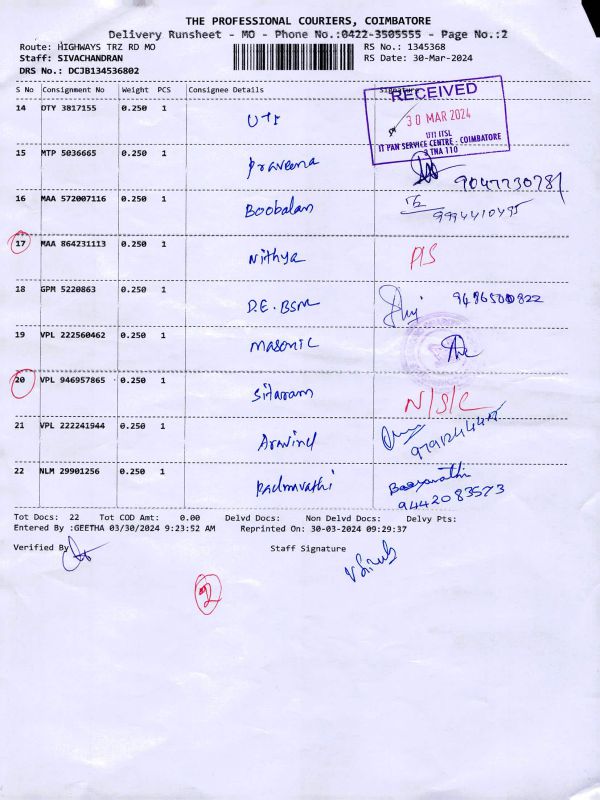 THE PROFESSIONAL COURIERS, COIMBATORE
Delivery Runsheet - MO - Phone No.:0422-3505555 - Page No.:2
Route: HIGHWAYS TRZ RD MO RS No.: 1345368
Staff: SIVACHANDRAN RS Date: 30-Mar-2024
DRS No.: DCJB134536802
S No Consignment No Weight PCS Consignee Details Signature
RECEIVED
30 MAR 2024
UTI ITSL
IT PAN SERVICE CENTRE - COIMBATORE
TNA 110
14 DTY 3817155 0.250 1 UTI
15 MTP 5036665 0.250 1 Praveena
16 MAA 572007116 0.250 1 Boobalan 9994410495
17 MAA 864231113 0.250 1 Nithya P/S
18 GPM 5220863 0.250 1 D.E. BSNL
19 VPL 222560462 0.250 1 Masonic
20 VPL 946957865 0.250 1 Sitaram N/S/C
21 VPL 222241944 0.250 1 Aravind
22 NLM 29901256 0.250 1 Padmavathi
9442083573
Tot Docs: 22 Tot COD Amt: 0.00 Delvd Docs: Non Delvd Docs: Delvy Pts:
Entered By :GEETHA 03/30/2024 9:23:52 AM Reprinted On: 30-03-2024 09:29:37
Verified By Staff Signature
2